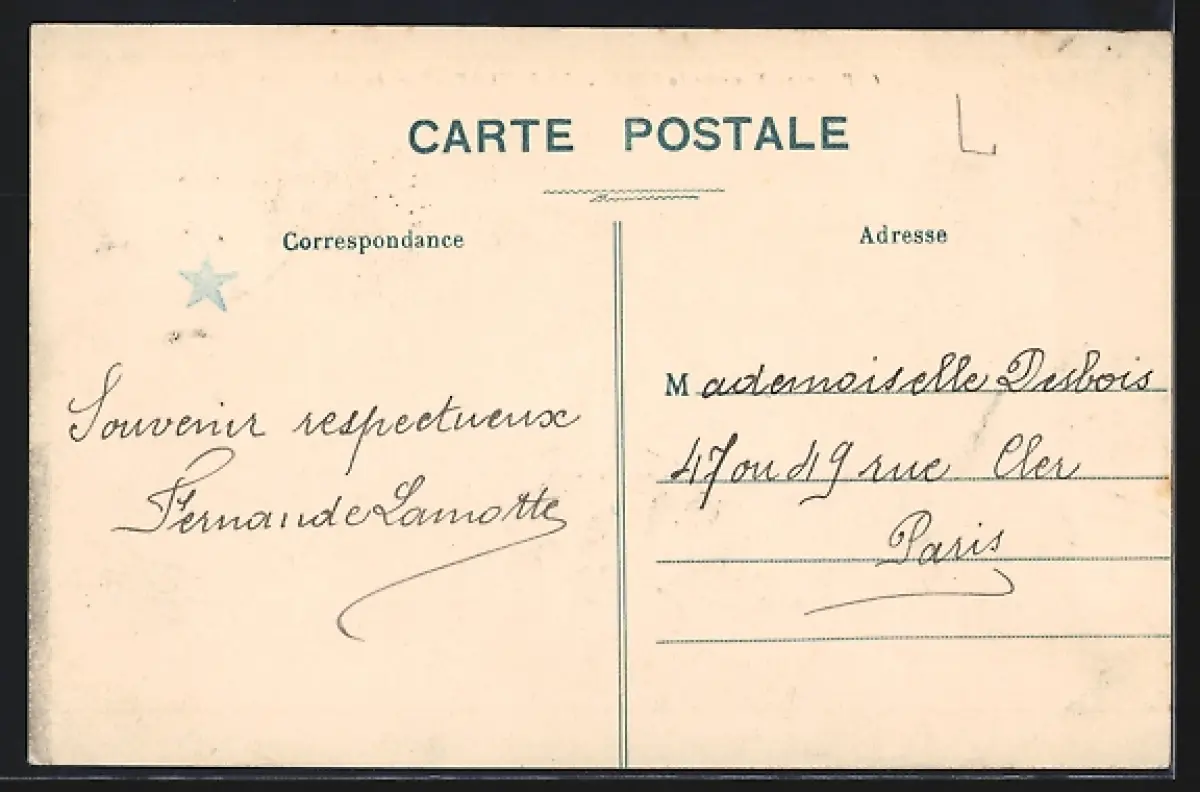 CARTE POSTALE
L
Correspondance
Adresse
Souvenir respectueux
Fernande Lamotte
Mademoiselle Desbois
47 ou 49 rue Cler
Paris